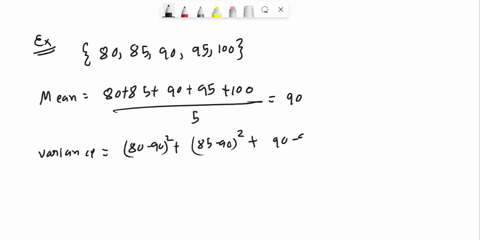 Ex { 80, 85, 90, 95, 100}
Mean = 80+85+ 90 + 95 +100 / 5 = 90
variance = (80-90)² + (85-90)² + 90-